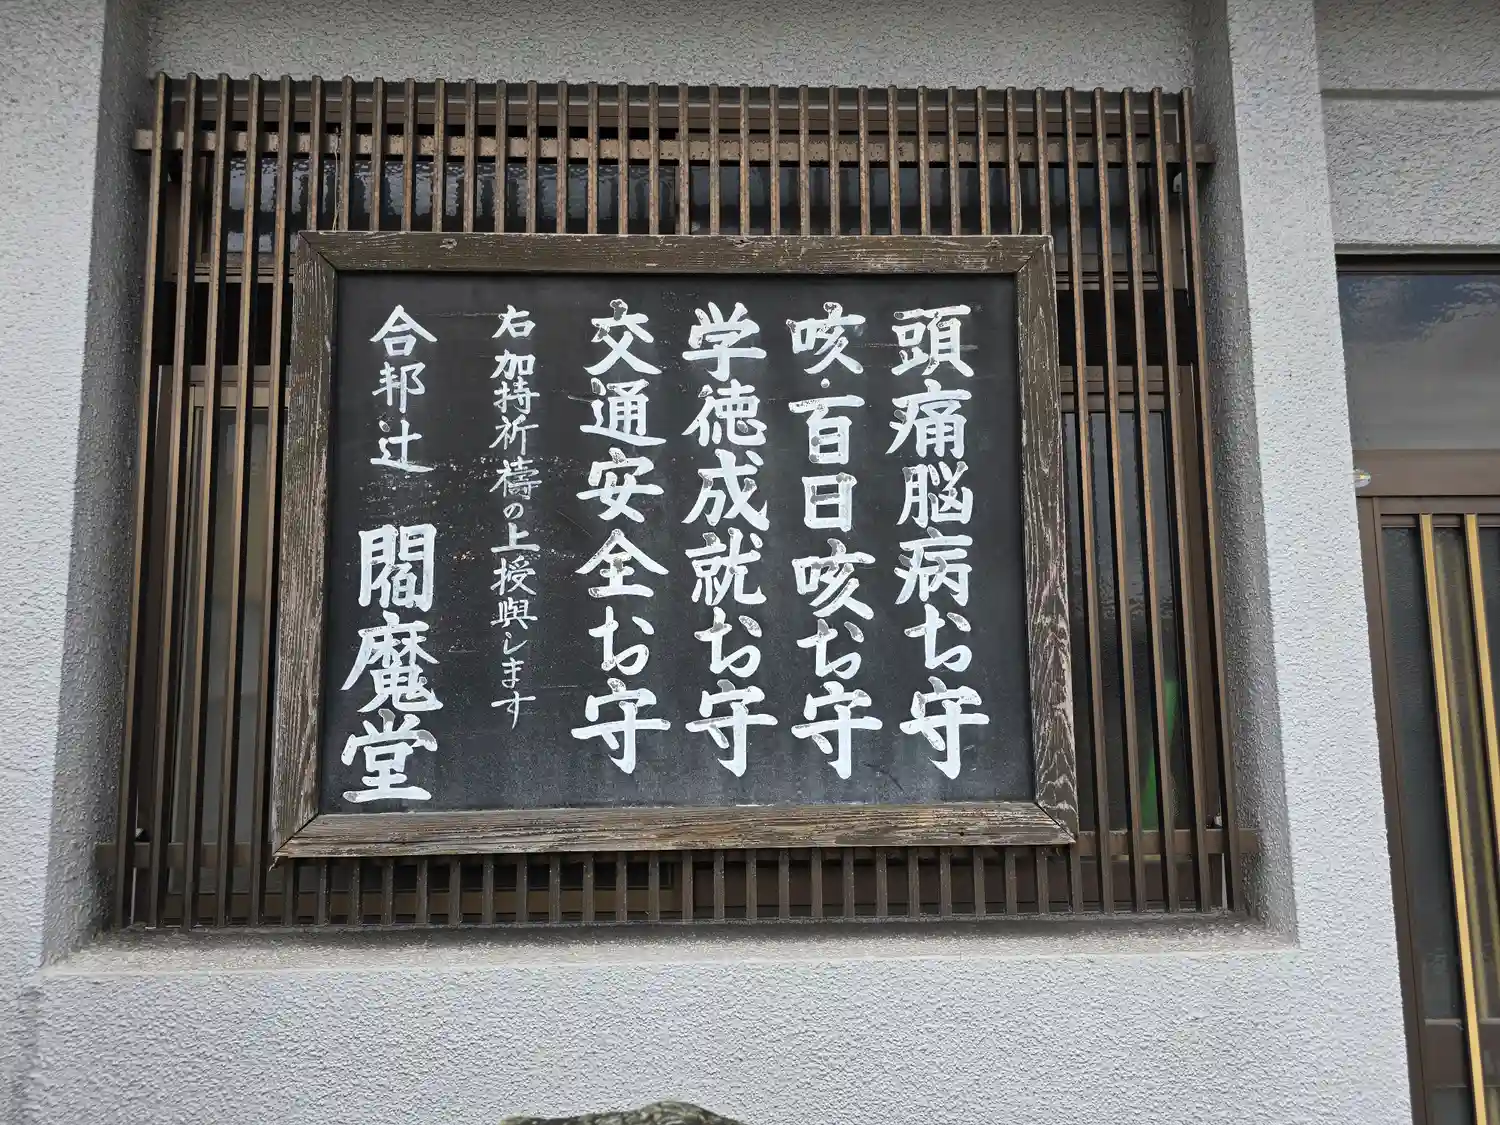 頭痛脳病お守
咳・百日咳お守
学徳成就お守
交通安全お守
右加持祈禱の上授與します
合邦辻 閻魔堂